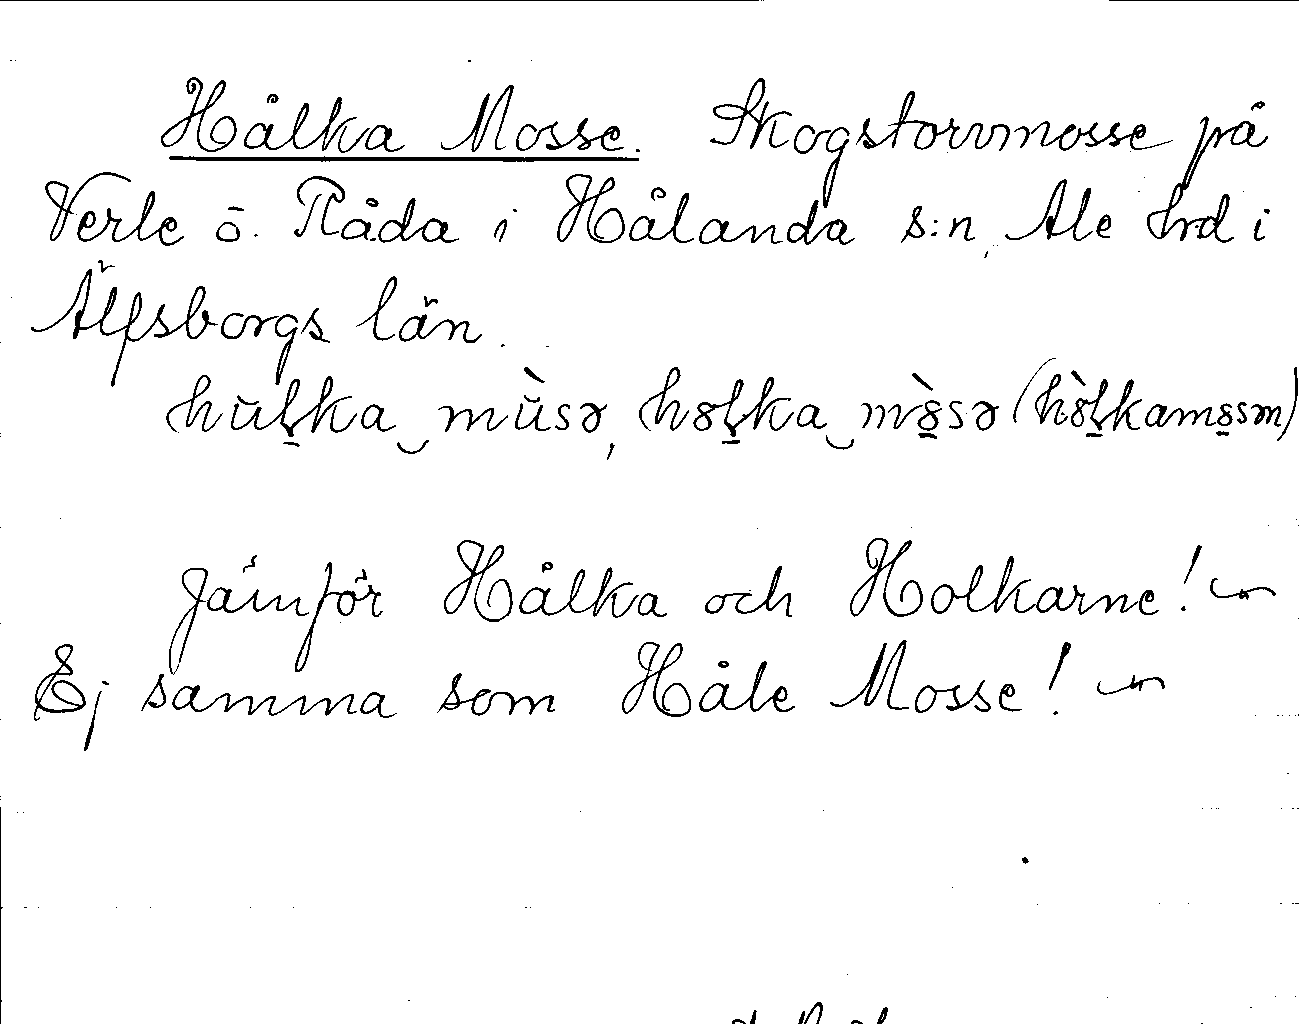 Hålka Mosse. Skogstorvmosse på
Verle o. Råda i Hålanda s:n, Ale hrd i
Älfsborgs län.
hŭl̠ka‿mŭ̀sə, hɞl̠ka‿mɞ̠̀sə (hɞ̀l̠kamɞ̠sən)
Jämför Hålka och Holkarne! ⁓
Ej samma som Håle Mosse! ⁓